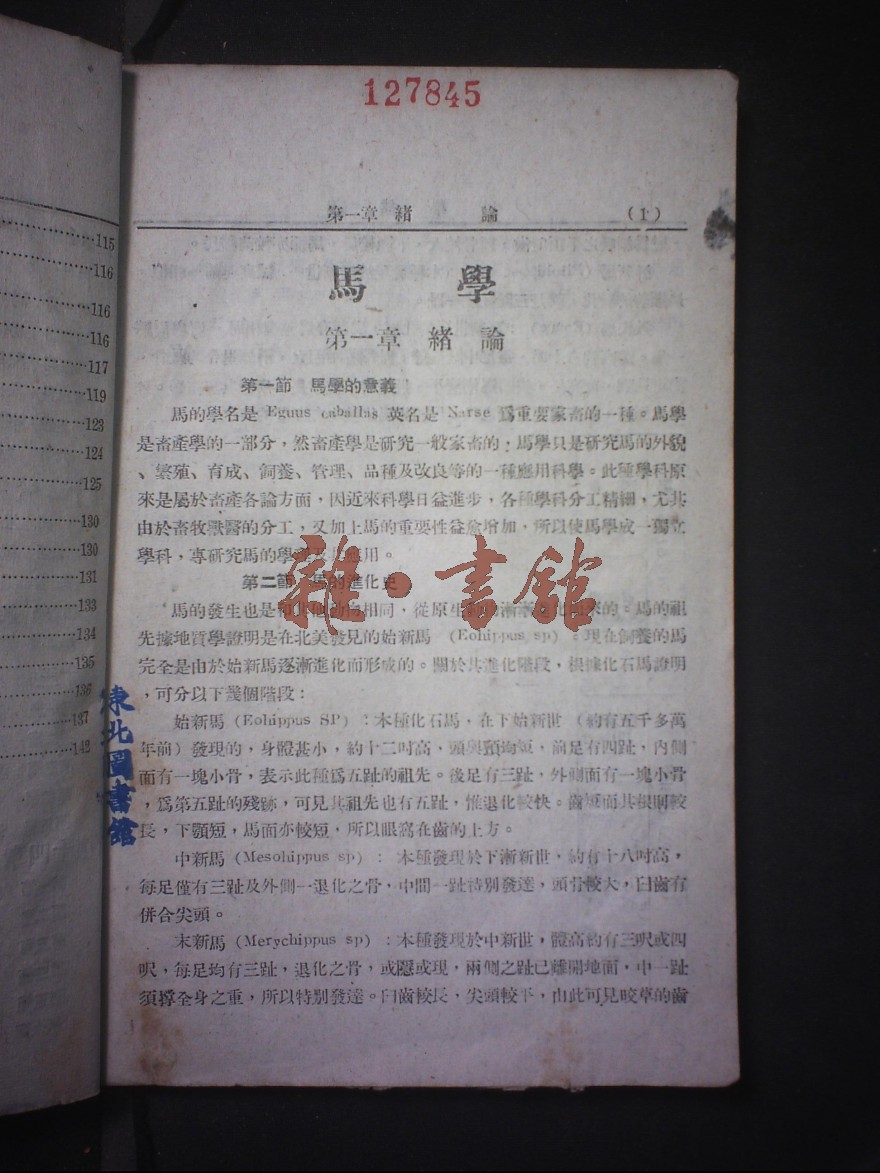 127845
第一章 緒 論 (1)
馬 學
第一章 緒 論
第一節 馬學的意義
馬的學名是 Eguus caballas 英名是 Narse 爲重要家畜的一種。馬學
是畜產學的一部分，然畜產學是研究一般家畜的；馬學只是研究馬的外貌
、繁殖、育成、飼養、管理、品種及改良等的一種應用科學。此種學科原
來是屬於畜產各論方面，因近來科學日益進步，各種學科分工精細，尤其
由於畜牧獸醫的分工，又加上馬的重要性益愈增加，所以使馬學成一獨立
學科，專研究馬的學 用。
第二節 馬的進化史
馬的發生也是和其他動物相同，從原生 漸漸 化 來的。馬的祖
先據地質學證明是在北美發見的始新馬 (Eohippus sp) 。現在飼養的馬
完全是由於始新馬逐漸進化而形成的。關於其進化階段，根據化石馬證明
，可分以下幾個階段：
始新馬 (Eohippus SP) ：本種化石馬，在下始新世 (約有五千多萬
年前) 發現的，身體甚小，約十二吋高，頭與頸均短，前足有四趾，內側
面有一塊小骨，表示此種爲五趾的祖先。後足有三趾，外側面有一塊小骨
，爲第五趾的殘跡，可見其祖先也有五趾，惟退化較快。齒短而其根則較
長，下顎短，馬面亦較短，所以眼窩在齒的上方。
中新馬 (Mesohippus sp) ：本種發現於下漸新世，約有十八吋高，
每足僅有三趾及外側一退化之骨，中間一趾特別發達，頭骨較大，臼齒有
併合尖頭。
末新馬 (Merychippus sp) ：本種發現於中新世，體高約有三呎或四
呎，每足均有三趾，退化之骨，或隱或現，兩側之趾已離開地面，中一趾
須撐全身之重，所以特別發達。臼齒較長，尖頭較平，由此可見咬草的齒
雜·書館
東北圖書館
115
116
116
116
117
119
123
124
125
130
130
131
133
134
135
136
137
142